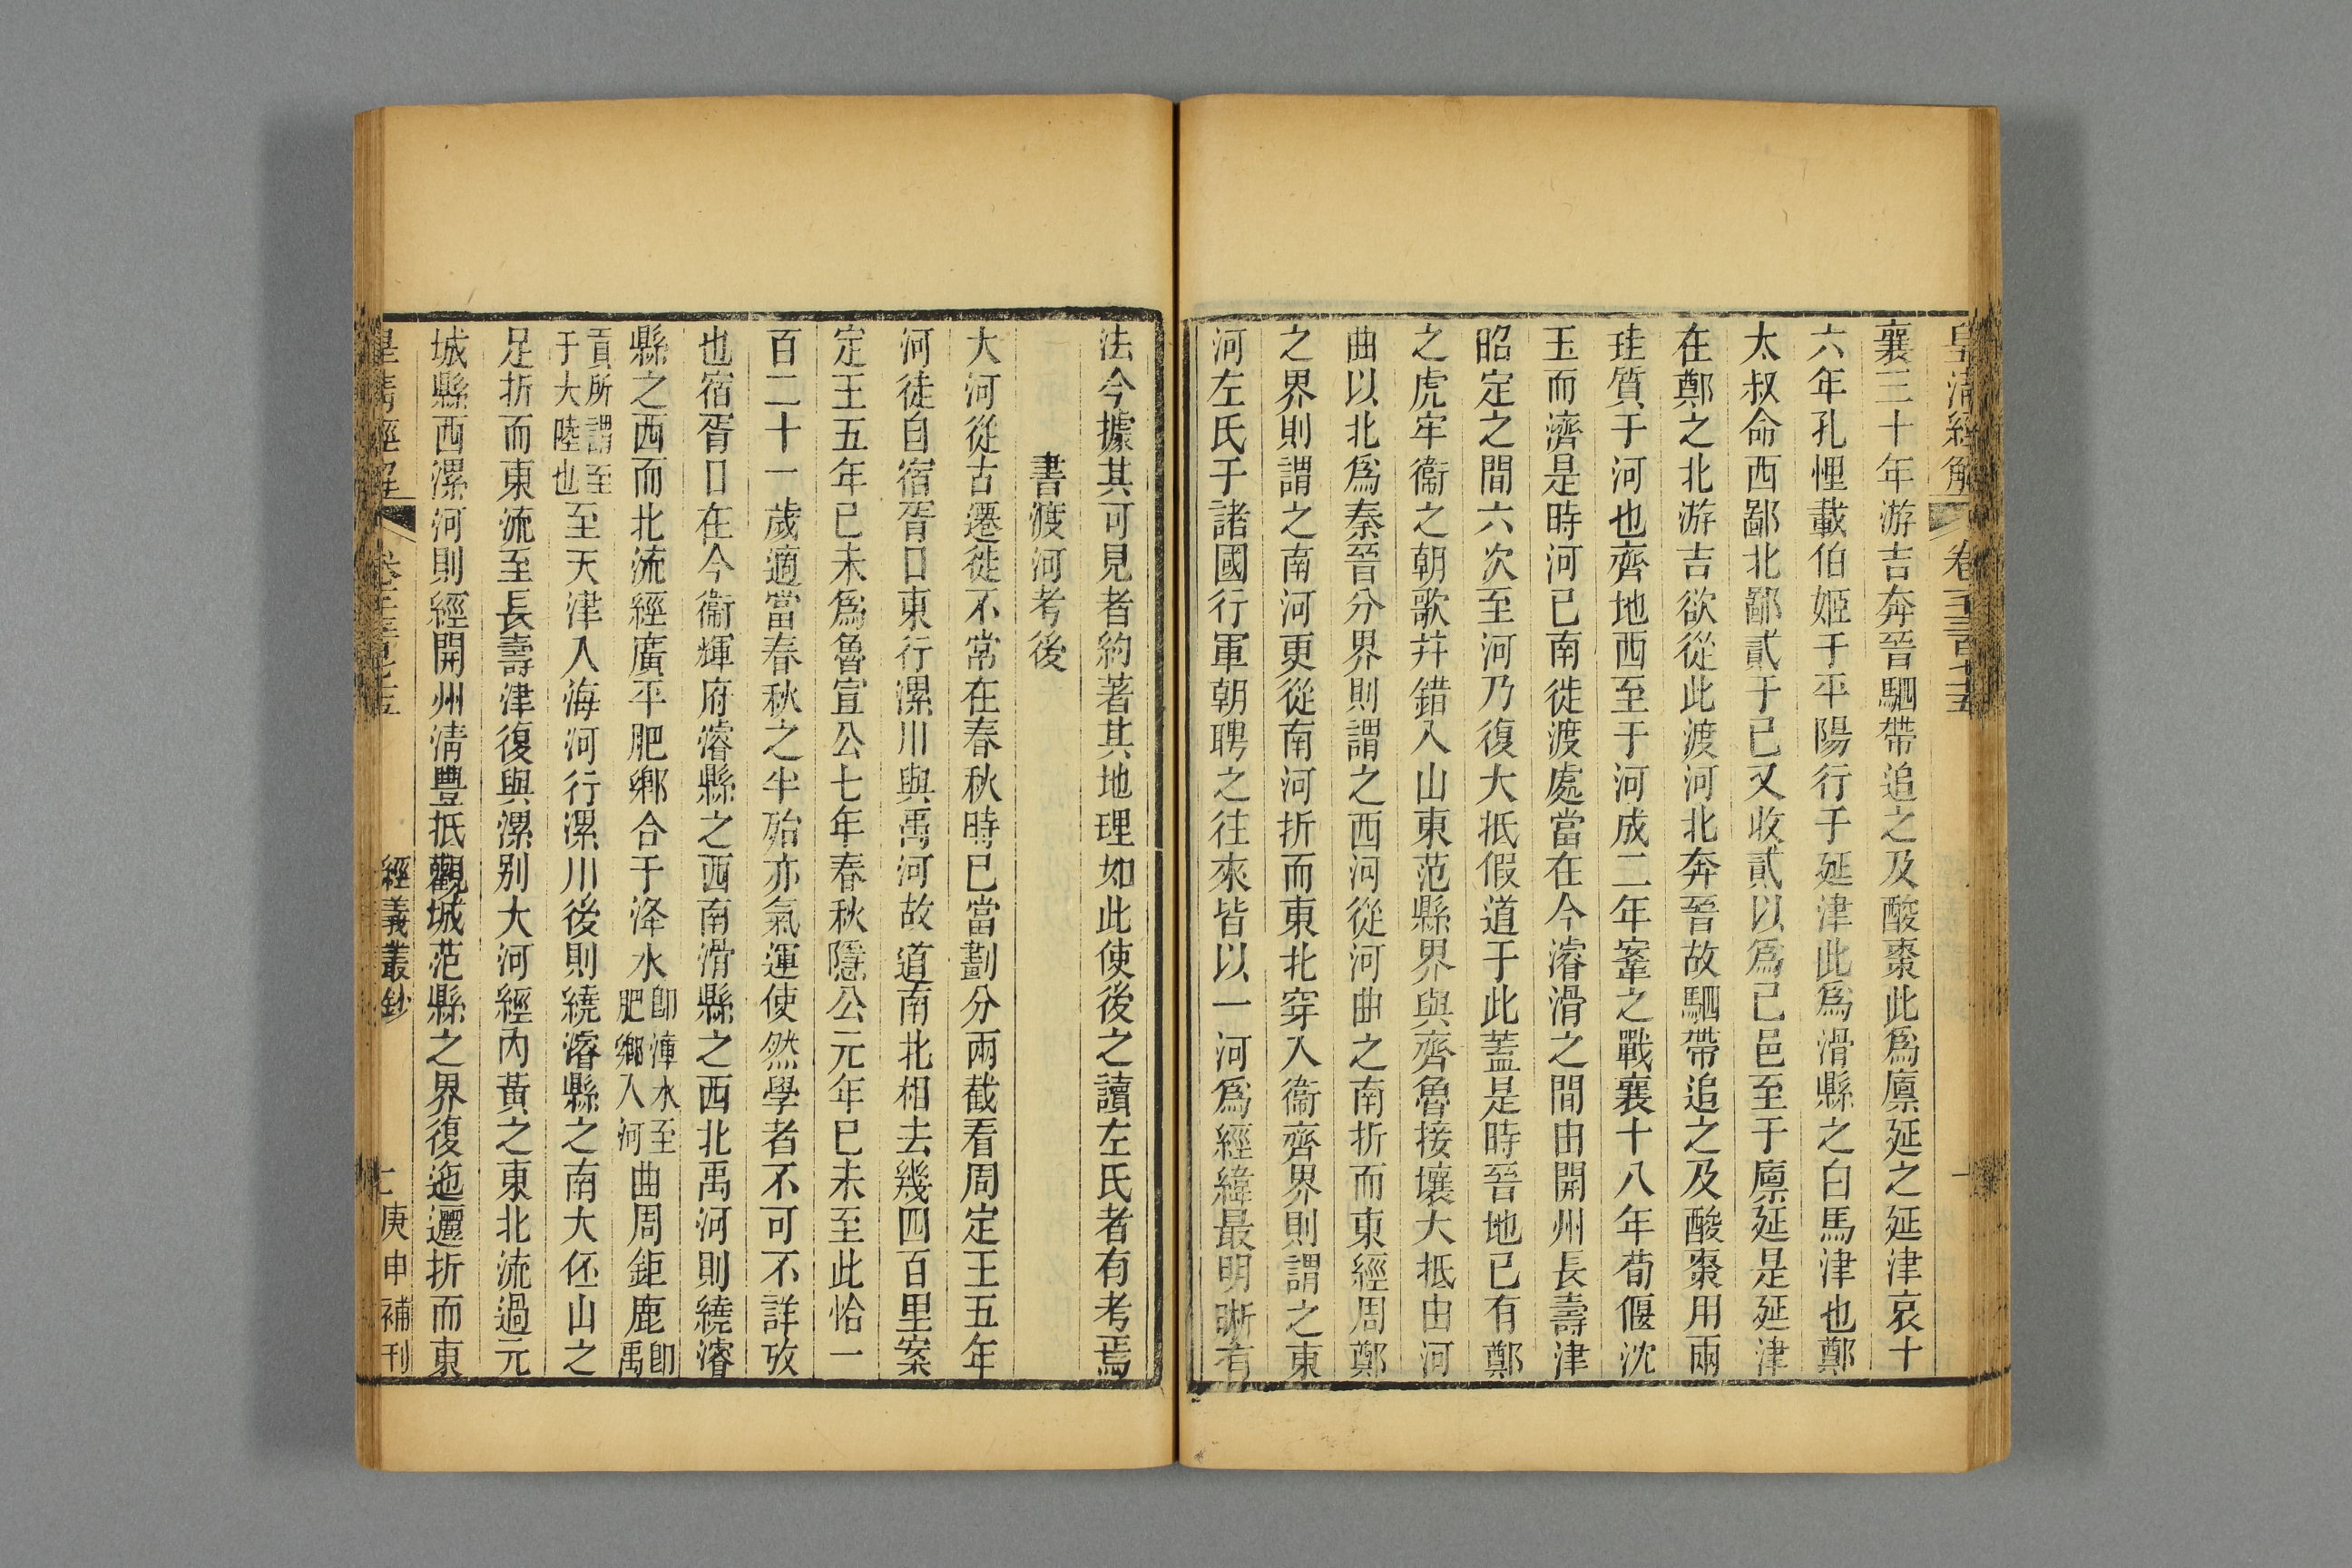 皇清經解 卷一千三百七十五
襄三十年游吉奔晉駟帶追之及酸棗此爲廩延之延津哀十
六年孔悝載伯姬于平陽行于延津此爲滑縣之白馬津也鄭
太叔命西鄙北鄙貳于己又收貳以爲己邑至于廩延是延津
在鄭之北游吉欲從此渡河北奔晉故駟帶追之及酸棗用兩
珪質于河也齊地西至于河成二年鞌之戰襄十八年荀偃沈
玉而濟是時河已南徙渡處當在今濬滑之間由開州長壽津
昭定之間六次至河乃復大抵假道于此蓋是時晉地已有鄭
之虎牢衞之朝歌幷錯入山東范縣界與齊魯接壤大抵由河
曲以北爲秦晉分界則謂之西河從河曲之南折而東經周鄭
之界則謂之南河更從南河折而東北穿入衞齊界則謂之東
河左氏于諸國行軍朝聘之往來皆以一河爲經緯最明晰有
法今據其可見者約著其地理如此使後之讀左氏者有考焉
書渡河考後
大河從古遷徙不常在春秋時已當劃分兩截看周定王五年
河徙自宿胥口東行漯川與禹河故道南北相去幾四百里案
定王五年己未爲魯宣公七年春秋隱公元年己未至此恰一
百二十一歲適當春秋之半殆亦氣運使然學者不可不詳攷
也宿胥口在今衞輝府濬縣之西南滑縣之西北禹河則繞濬
縣之西而北流經廣平肥鄉合于洚水卽漳水至肥鄉入河曲周鉅鹿卽禹
貢所謂至于大陸也至天津入海河行漯川後則繞濬縣之南大伾山之
足折而東流至長壽津復與漯别大河經內黃之東北流過元
城縣西漯河則經開州淸豐抵觀城范縣之界復迤邐折而東
皇清經解 卷一千三百七十五 經義叢鈔 庚申補刊